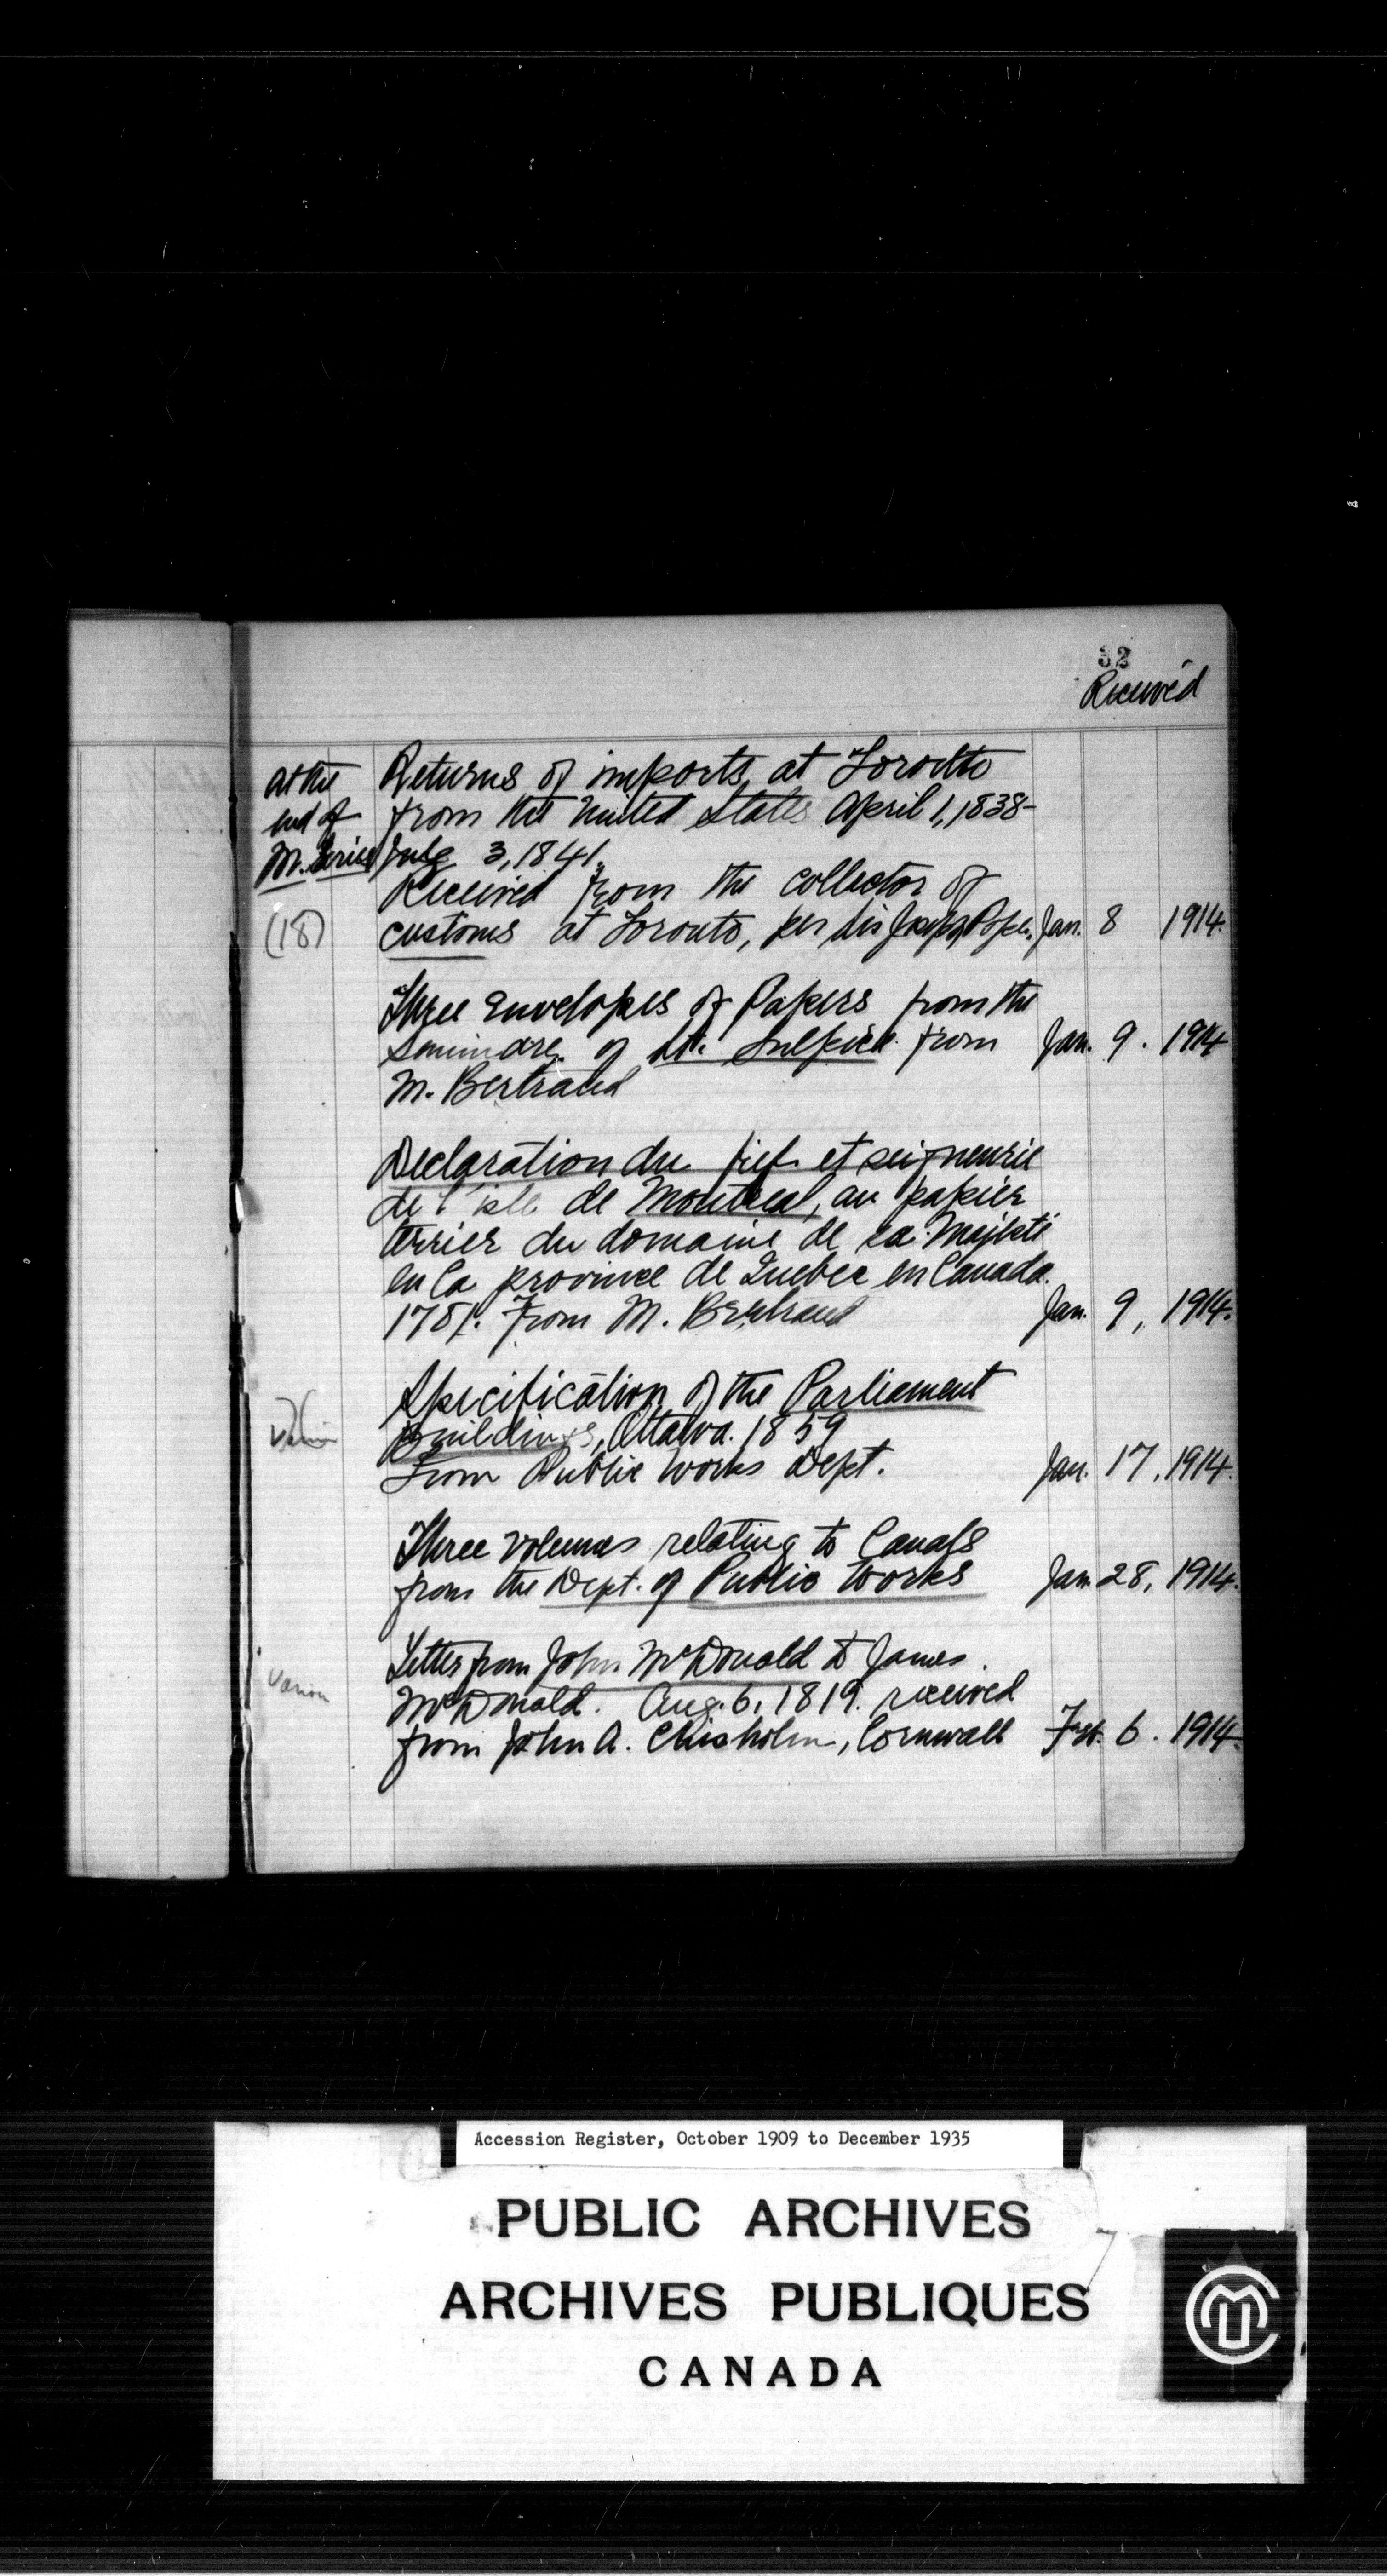 32
Received
at the
end of
M. Series
(18)
Returns of imports at Toronto
from the United States April 1, 1838-
July 3, 1841.
Received from the collector of
customs at Toronto, per Sir Joseph Pope. Jan. 8 1914.
Three Envelopes of Papers from the
Seminary of St. Sulpice from Jan. 9. 1914
M. Bertrand
Declaration du fief et seigneurie
de l'isle de Montreal, au papier
terrier du domaine de sa Majesté
en la province de Quebec en Canada.
1781. From M. Bertrand Jan. 9, 1914.
Specification of the Parliament
Buildings, Ottawa. 1859
From Public Works Dept. Jan. 17, 1914.
Three volumes relating to Canals
from the Dept. of Public Works Jan 28, 1914.
Letter from John McDonald to James
McDonald. Aug. 6, 1819. received
from John A. Chisholm, Cornwall 6. 1914.
Accession Register, October 1909 to December 1935
PUBLIC ARCHIVES
ARCHIVES PUBLIQUES
CANADA